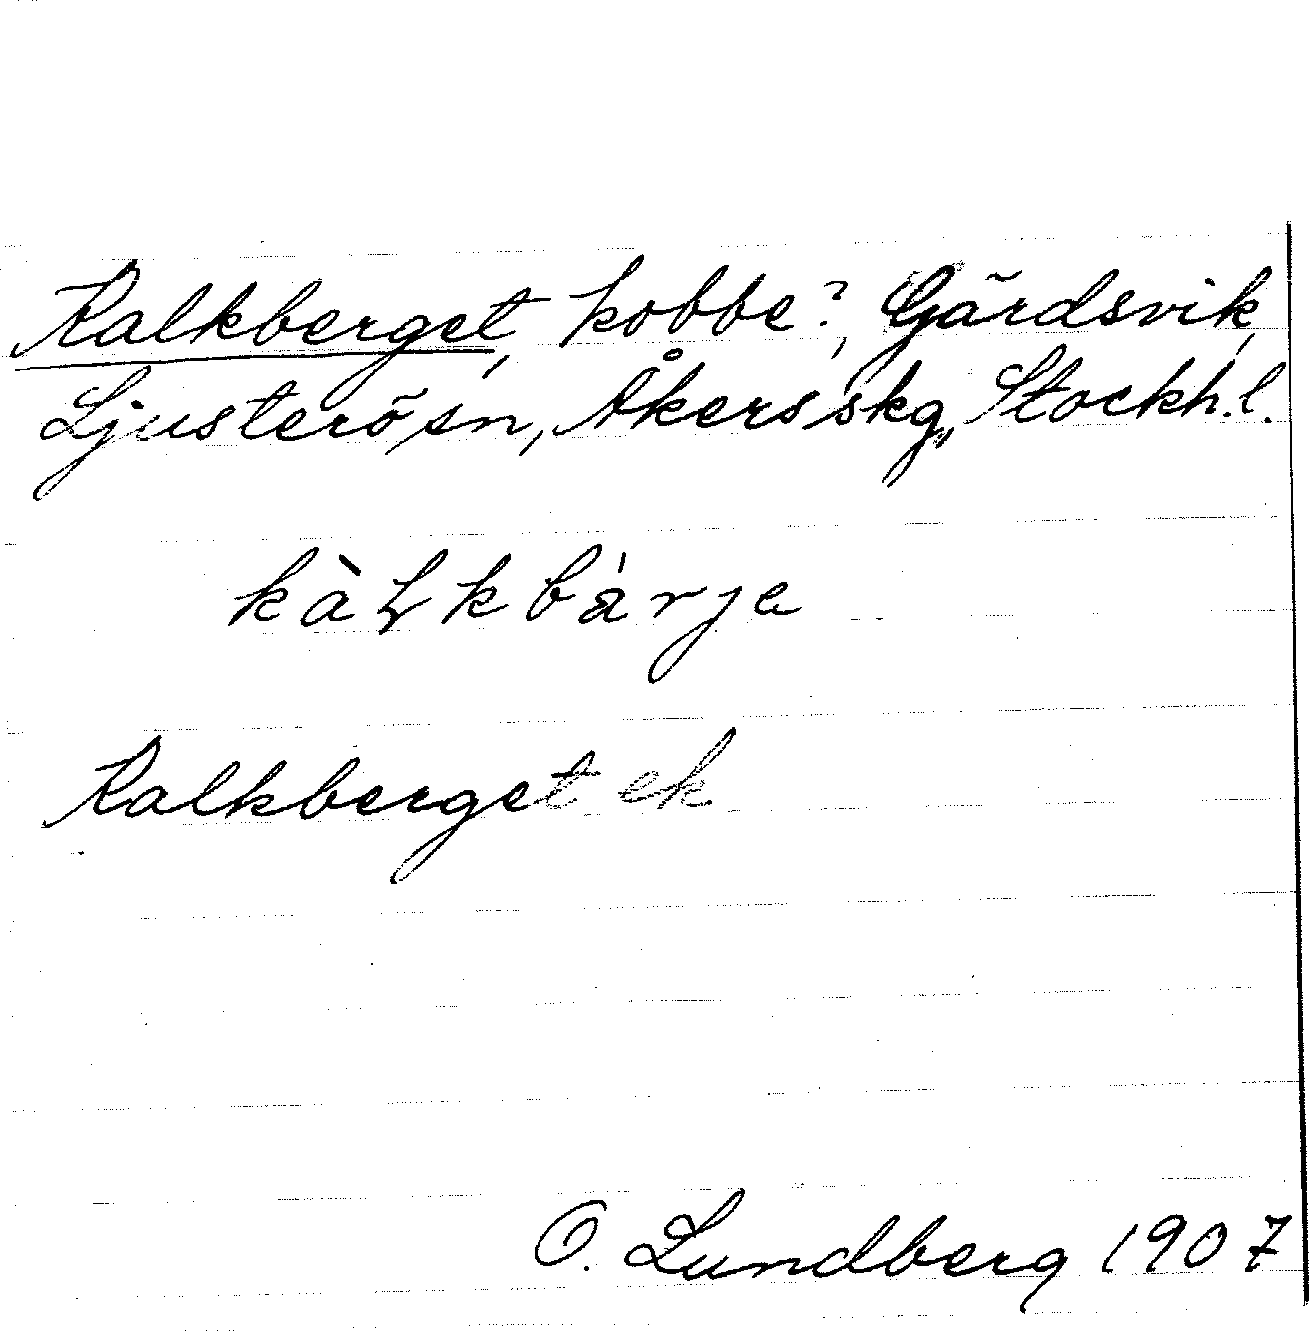 Kalkberget, kobbe?, Gärdsvik,
Ljusterö sn, Åkers skg, Stockh.l.
kàłkbá̈rje
Kalkberget ek
O. Lundberg 1907